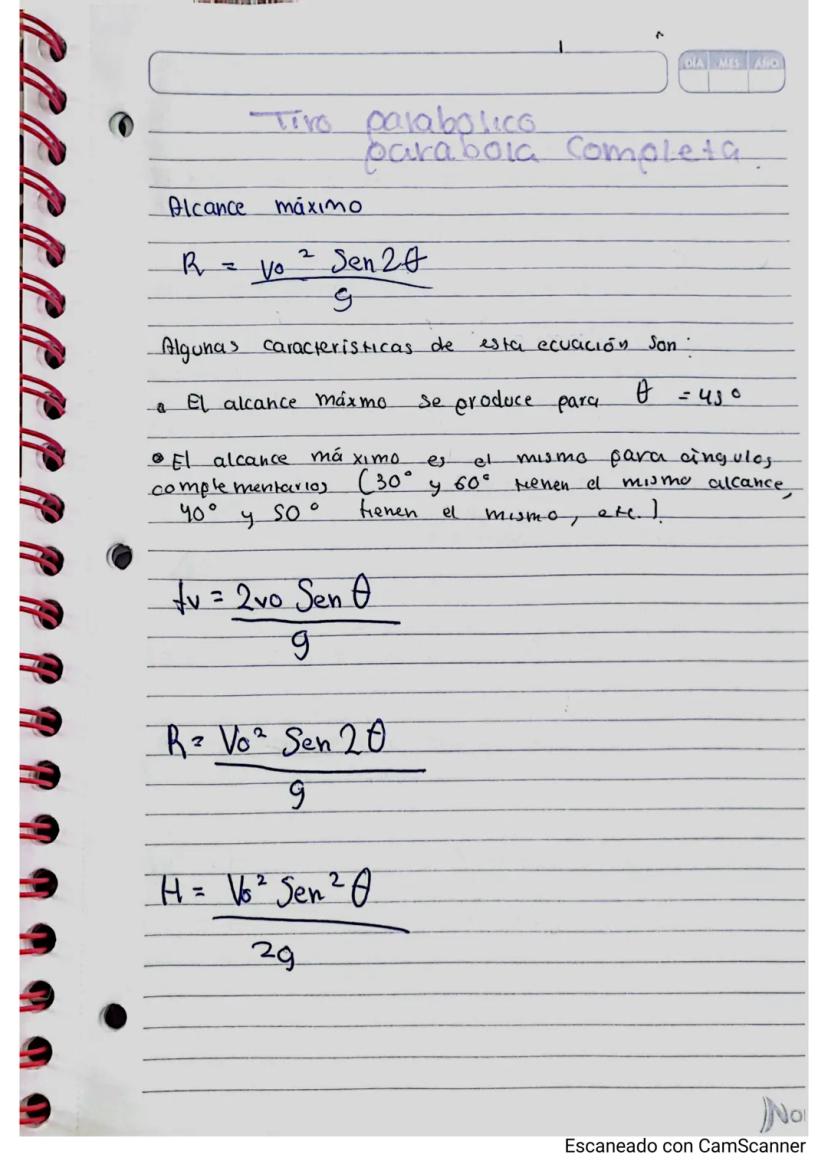 DÍA MES AÑO
Tiro parabolico
parabola Completa.
Alcance máximo
R = Vo² Sen2θ
g
Algunas caracteristicas de esta ecuación son:
• El alcance máxmo se produce para θ = 45°
• El alcance má ximo es el mismo para ángulos
complementarios (30° y 60° tienen el mismo alcance,
40° y 50° tienen el mismo, etc.).
tv = 2vo Sen θ
g
R = Vo² Sen 2θ
g
H = Vo² Sen² θ
2g
Escaneado con CamScanner